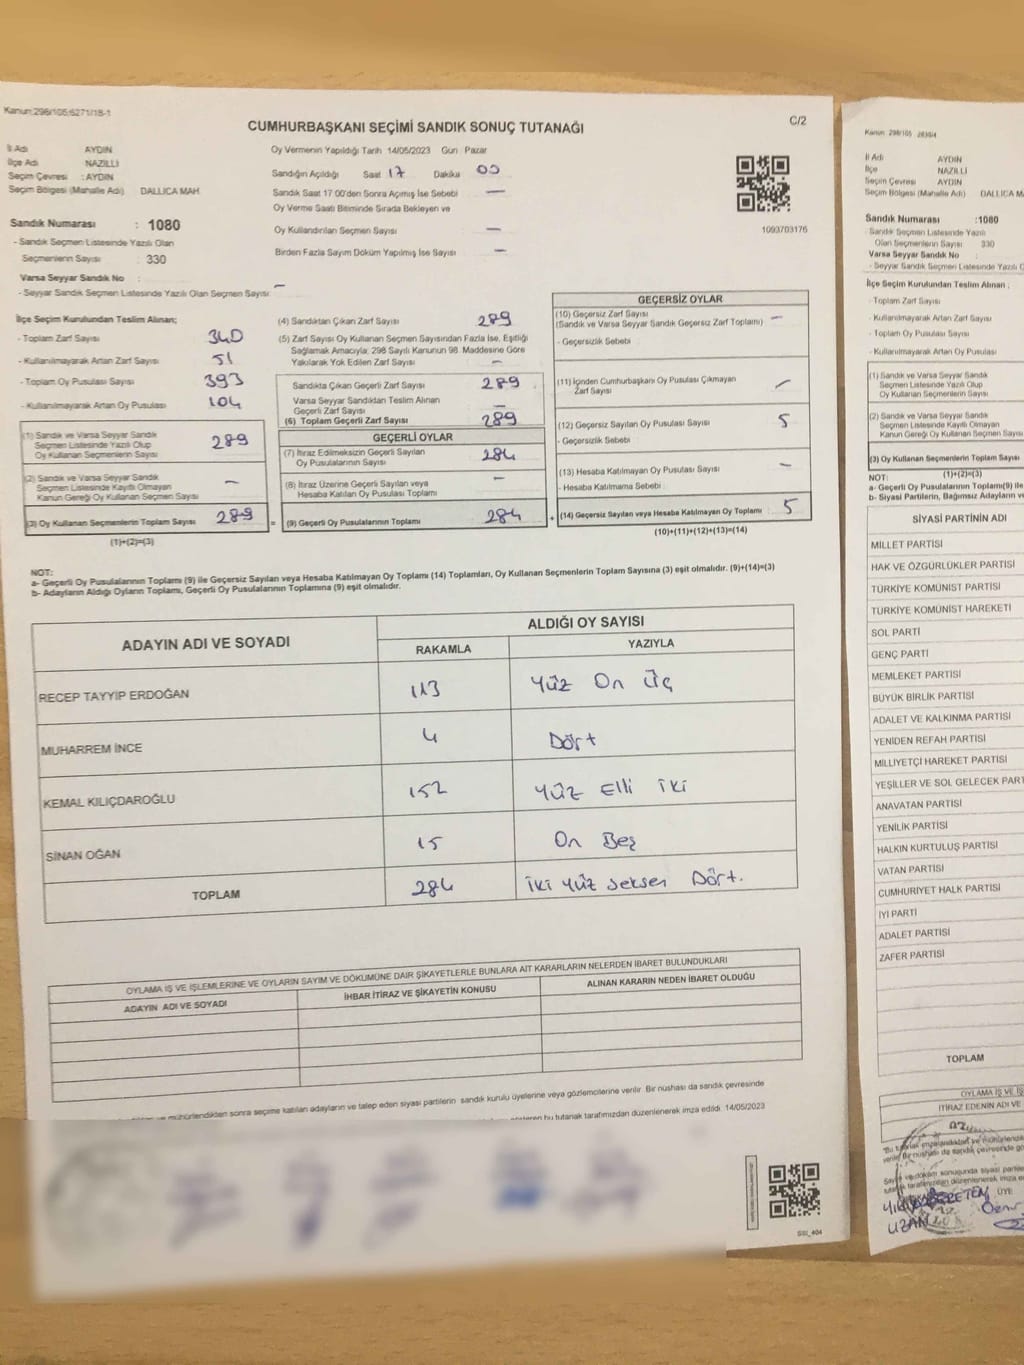 Kanun:298/105;6271/18-1
C/2
CUMHURBAŞKANI SEÇİMİ SANDIK SONUÇ TUTANAĞI
İl Adı AYDIN
İlçe Adı NAZİLLİ
Seçim Çevresi : AYDIN
Seçim Bölgesi (Mahalle Adı) DALLICA MAH.
Sandık Numarası : 1080
- Sandık Seçmen Listesinde Yazılı Olan
Seçmenlerin Sayısı : 330
Varsa Seyyar Sandık No :
- Seyyar Sandık Seçmen Listesinde Yazılı Olan Seçmen Sayısı: —
Oy Vermenin Yapıldığı Tarih 14/05/2023 Gün Pazar
Sandığın Açıldığı Saat 17 Dakika 00
Sandık Saat 17.00'den Sonra Açılmış İse Sebebi —
Oy Verme Saati Bitiminde Sırada Bekleyen ve
Oy Kullandırılan Seçmen Sayısı —
Birden Fazla Sayım Döküm Yapılmış İse Sayısı —
1093703176
İlçe Seçim Kurulundan Teslim Alınan;
- Toplam Zarf Sayısı 340
- Kullanılmayarak Artan Zarf Sayısı 51
- Toplam Oy Pusulası Sayısı 393
- Kullanılmayarak Artan Oy Pusulası 104
(1) Sandık ve Varsa Seyyar Sandık
Seçmen Listesinde Yazılı Olup
Oy Kullanan Seçmenlerin Sayısı 289
(2) Sandık ve Varsa Seyyar Sandık
Seçmen Listesinde Kayıtlı Olmayan
Kanun Gereği Oy Kullanan Seçmen Sayısı —
(3) Oy Kullanan Seçmenlerin Toplam Sayısı 289
(1)+(2)=(3)
(4) Sandıktan Çıkan Zarf Sayısı 289
(5) Zarf Sayısı Oy Kullanan Seçmen Sayısından Fazla İse, Eşitliği
Sağlamak Amacıyla; 298 Sayılı Kanunun 98. Maddesine Göre
Yakılarak Yok Edilen Zarf Sayısı —
Sandıkta Çıkan Geçerli Zarf Sayısı 289
Varsa Seyyar Sandıktan Teslim Alınan
Geçerli Zarf Sayısı —
(6) Toplam Geçerli Zarf Sayısı 289
GEÇERLİ OYLAR
(7) İtiraz Edilmeksizin Geçerli Sayılan
Oy Pusulalarının Sayısı 284
(8) İtiraz Üzerine Geçerli Sayılan veya
Hesaba Katılan Oy Pusulası Toplamı —
= (9) Geçerli Oy Pusulalarının Toplamı 284
GEÇERSİZ OYLAR
(10) Geçersiz Zarf Sayısı
(Sandık ve Varsa Seyyar Sandık Geçersiz Zarf Toplamı) —
- Geçersizlik Sebebi
(11) İçinden Cumhurbaşkanı Oy Pusulası Çıkmayan
Zarf Sayısı —
(12) Geçersiz Sayılan Oy Pusulası Sayısı 5
- Geçersizlik Sebebi
(13) Hesaba Katılmayan Oy Pusulası Sayısı —
- Hesaba Katılmama Sebebi
+ (14) Geçersiz Sayılan veya Hesaba Katılmayan Oy Toplamı 5
(10)+(11)+(12)+(13)=(14)
NOT:
a- Geçerli Oy Pusulalarının Toplamı (9) ile Geçersiz Sayılan veya Hesaba Katılmayan Oy Toplamı (14) Toplamları, Oy Kullanan Seçmenlerin Toplam Sayısına (3) eşit olmalıdır. (9)+(14)=(3)
b- Adayların Aldığı Oyların Toplamı, Geçerli Oy Pusulalarının Toplamına (9) eşit olmalıdır.
ADAYIN ADI VE SOYADI ALDIĞI OY SAYISI
RAKAMLA YAZIYLA
RECEP TAYYİP ERDOĞAN 113 Yüz On Üç
MUHARREM İNCE 4 Dört
KEMAL KILIÇDAROĞLU 152 Yüz Elli iki
SİNAN OĞAN 15 On Beş
TOPLAM 284 iki yüz seksen Dört.
OYLAMA İŞ VE İŞLEMLERİNE VE OYLARIN SAYIM VE DÖKÜMÜNE DAİR ŞİKAYETLERLE BUNLARA AİT KARARLARIN NELERDEN İBARET BULUNDUKLARI
ADAYIN ADI VE SOYADI İHBAR İTİRAZ VE ŞİKAYETİN KONUSU ALINAN KARARIN NEDEN İBARET OLDUĞU
mühürlendikten sonra seçime katılan adayların ve talep eden siyasi partilerin sandık kurulu üyelerine veya gözlemcilerine verilir. Bir nüshası da sandık çevresinde
bu tutanak tarafımızdan düzenlenerek imza edildi. 14/05/2023
SSI_404
Kanun: 298/105
İl Adı AYDIN
İlçe NAZİLLİ
Seçim Çevresi AYDIN
Seçim Bölgesi (Mahalle Adı) DALLICA MA
Sandık Numarası :1080
- Sandık Seçmen Listesinde Yazılı
Olan Seçmenlerin Sayısı 330
Varsa Seyyar Sandık No
- Seyyar Sandık Seçmen Listesinde Yazılı O
İlçe Seçim Kurulundan Teslim Alınan ;
- Toplam Zarf Sayısı
- Kullanılmayarak Artan Zarf Sayısı
- Toplam Oy Pusulası Sayısı
- Kullanılmayarak Artan Oy Pusulası
(1) Sandık ve Varsa Seyyar Sandık
Seçmen Listesinde Yazılı Olup
Oy Kullanan Seçmenlerin Sayısı
(2) Sandık ve Varsa Seyyar Sandık
Seçmen Listesinde Kayıtlı Olmayan
Kanun Gereği Oy Kullanan Seçmen Sayısı
(3) Oy Kullanan Seçmenlerin Toplam Sayısı
(1)+(2)=(3)
NOT:
a- Geçerli Oy Pusulalarının Toplamı(9) ile
b- Siyasi Partilerin, Bağımsız Adayların ve
SİYASİ PARTİNİN ADI
MİLLET PARTİSİ
HAK VE ÖZGÜRLÜKLER PARTİSİ
TÜRKİYE KOMÜNİST PARTİSİ
TÜRKİYE KOMÜNİST HAREKETİ
SOL PARTİ
GENÇ PARTİ
MEMLEKET PARTİSİ
BÜYÜK BİRLİK PARTİSİ
ADALET VE KALKINMA PARTİSİ
YENİDEN REFAH PARTİSİ
MİLLİYETÇİ HAREKET PARTİSİ
YEŞİLLER VE SOL GELECEK PART
ANAVATAN PARTİSİ
YENİLİK PARTİSİ
HALKIN KURTULUŞ PARTİSİ
VATAN PARTİSİ
CUMHURİYET HALK PARTİSİ
İYİ PARTİ
ADALET PARTİSİ
ZAFER PARTİSİ
TOPLAM
OYLAMA İŞ VE İŞ
İTİRAZ EDENİN ADI VE